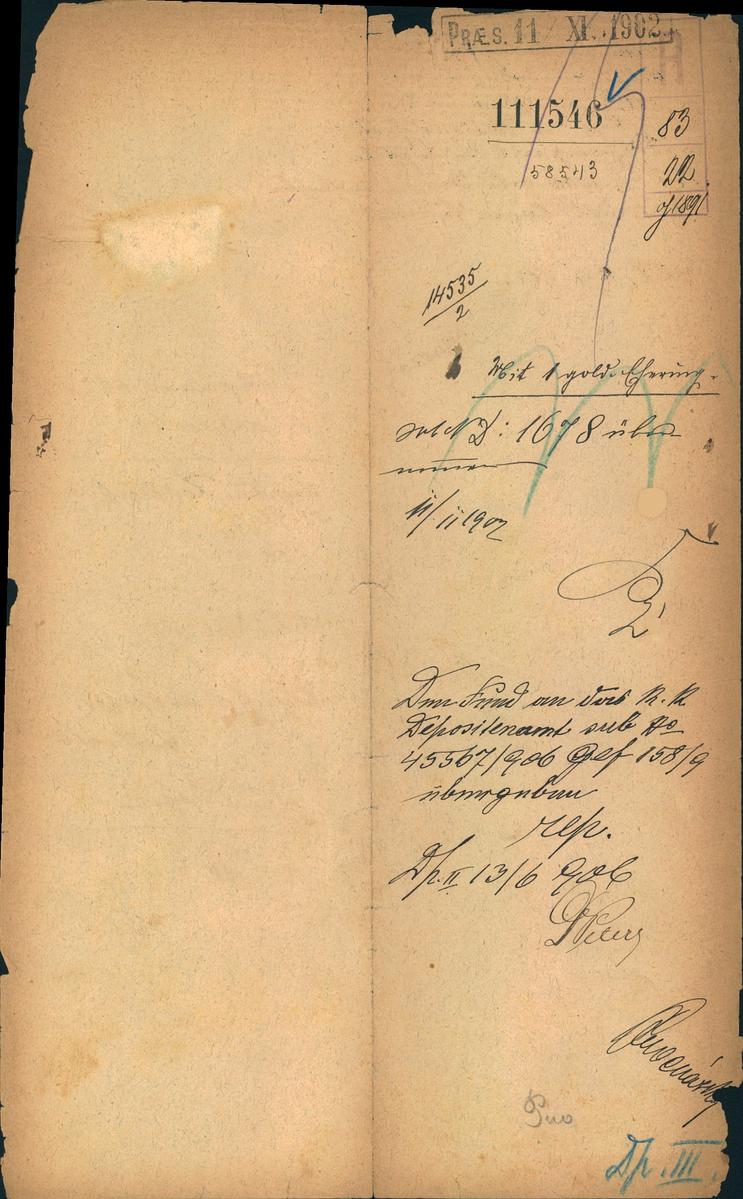 PRÆS. 11 XI. 1902
111546
83
58543
22
1891
14535/2
Mit 1 gold. Ehering.
sub ND: 1678 über
nommen
11/11 1902
Den Fund an das k. k.
Depositenamt sub No
45567/906 Gef 158/9
übergeben
rep.
Dp. II 13/6 906
Dp. III.